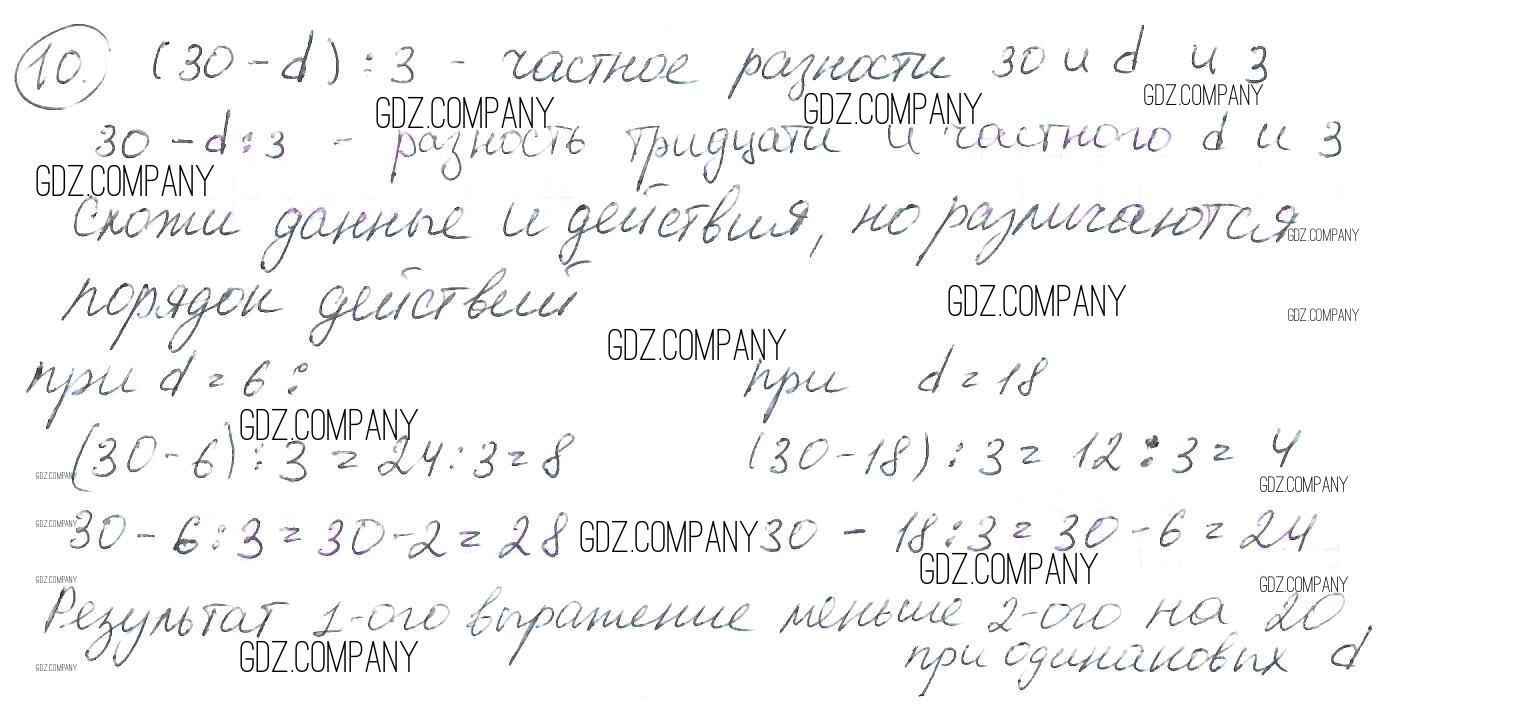 10. (30 - d) : 3 - частное разности 30 и d и 3
GDZ.COMPANY GDZ.COMPANY GDZ.COMPANY
30 - d : 3 - разность тридцати и частного d и 3
GDZ.COMPANY
Схожи данные и действия, но различаются
GDZ.COMPANY
порядок действий
GDZ.COMPANY GDZ.COMPANY
GDZ.COMPANY
при d = 6 : при d = 18
GDZ.COMPANY
(30 - 6) : 3 = 24 : 3 = 8 (30 - 18) : 3 = 12 : 3 = 4
GDZ.COMPANY GDZ.COMPANY
30 - 6 : 3 = 30 - 2 = 28 30 - 18 : 3 = 30 - 6 = 24
GDZ.COMPANY GDZ.COMPANY
GDZ.COMPANY GDZ.COMPANY GDZ.COMPANY
Результат 1-ого выражение меньше 2-ого на 20
при одинаковых d
GDZ.COMPANY GDZ.COMPANY